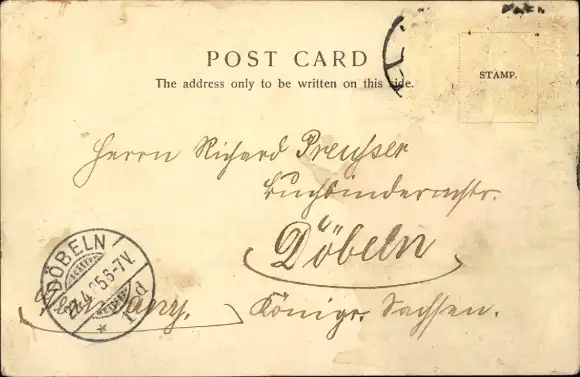 POST CARD
The address only to be written on this side.
STAMP.
Herrn Richard Preußer
Buchbindermstr.
Döbeln
Germany. Königr. Sachsen.
DÖBELN
27.4.05.6-7V.